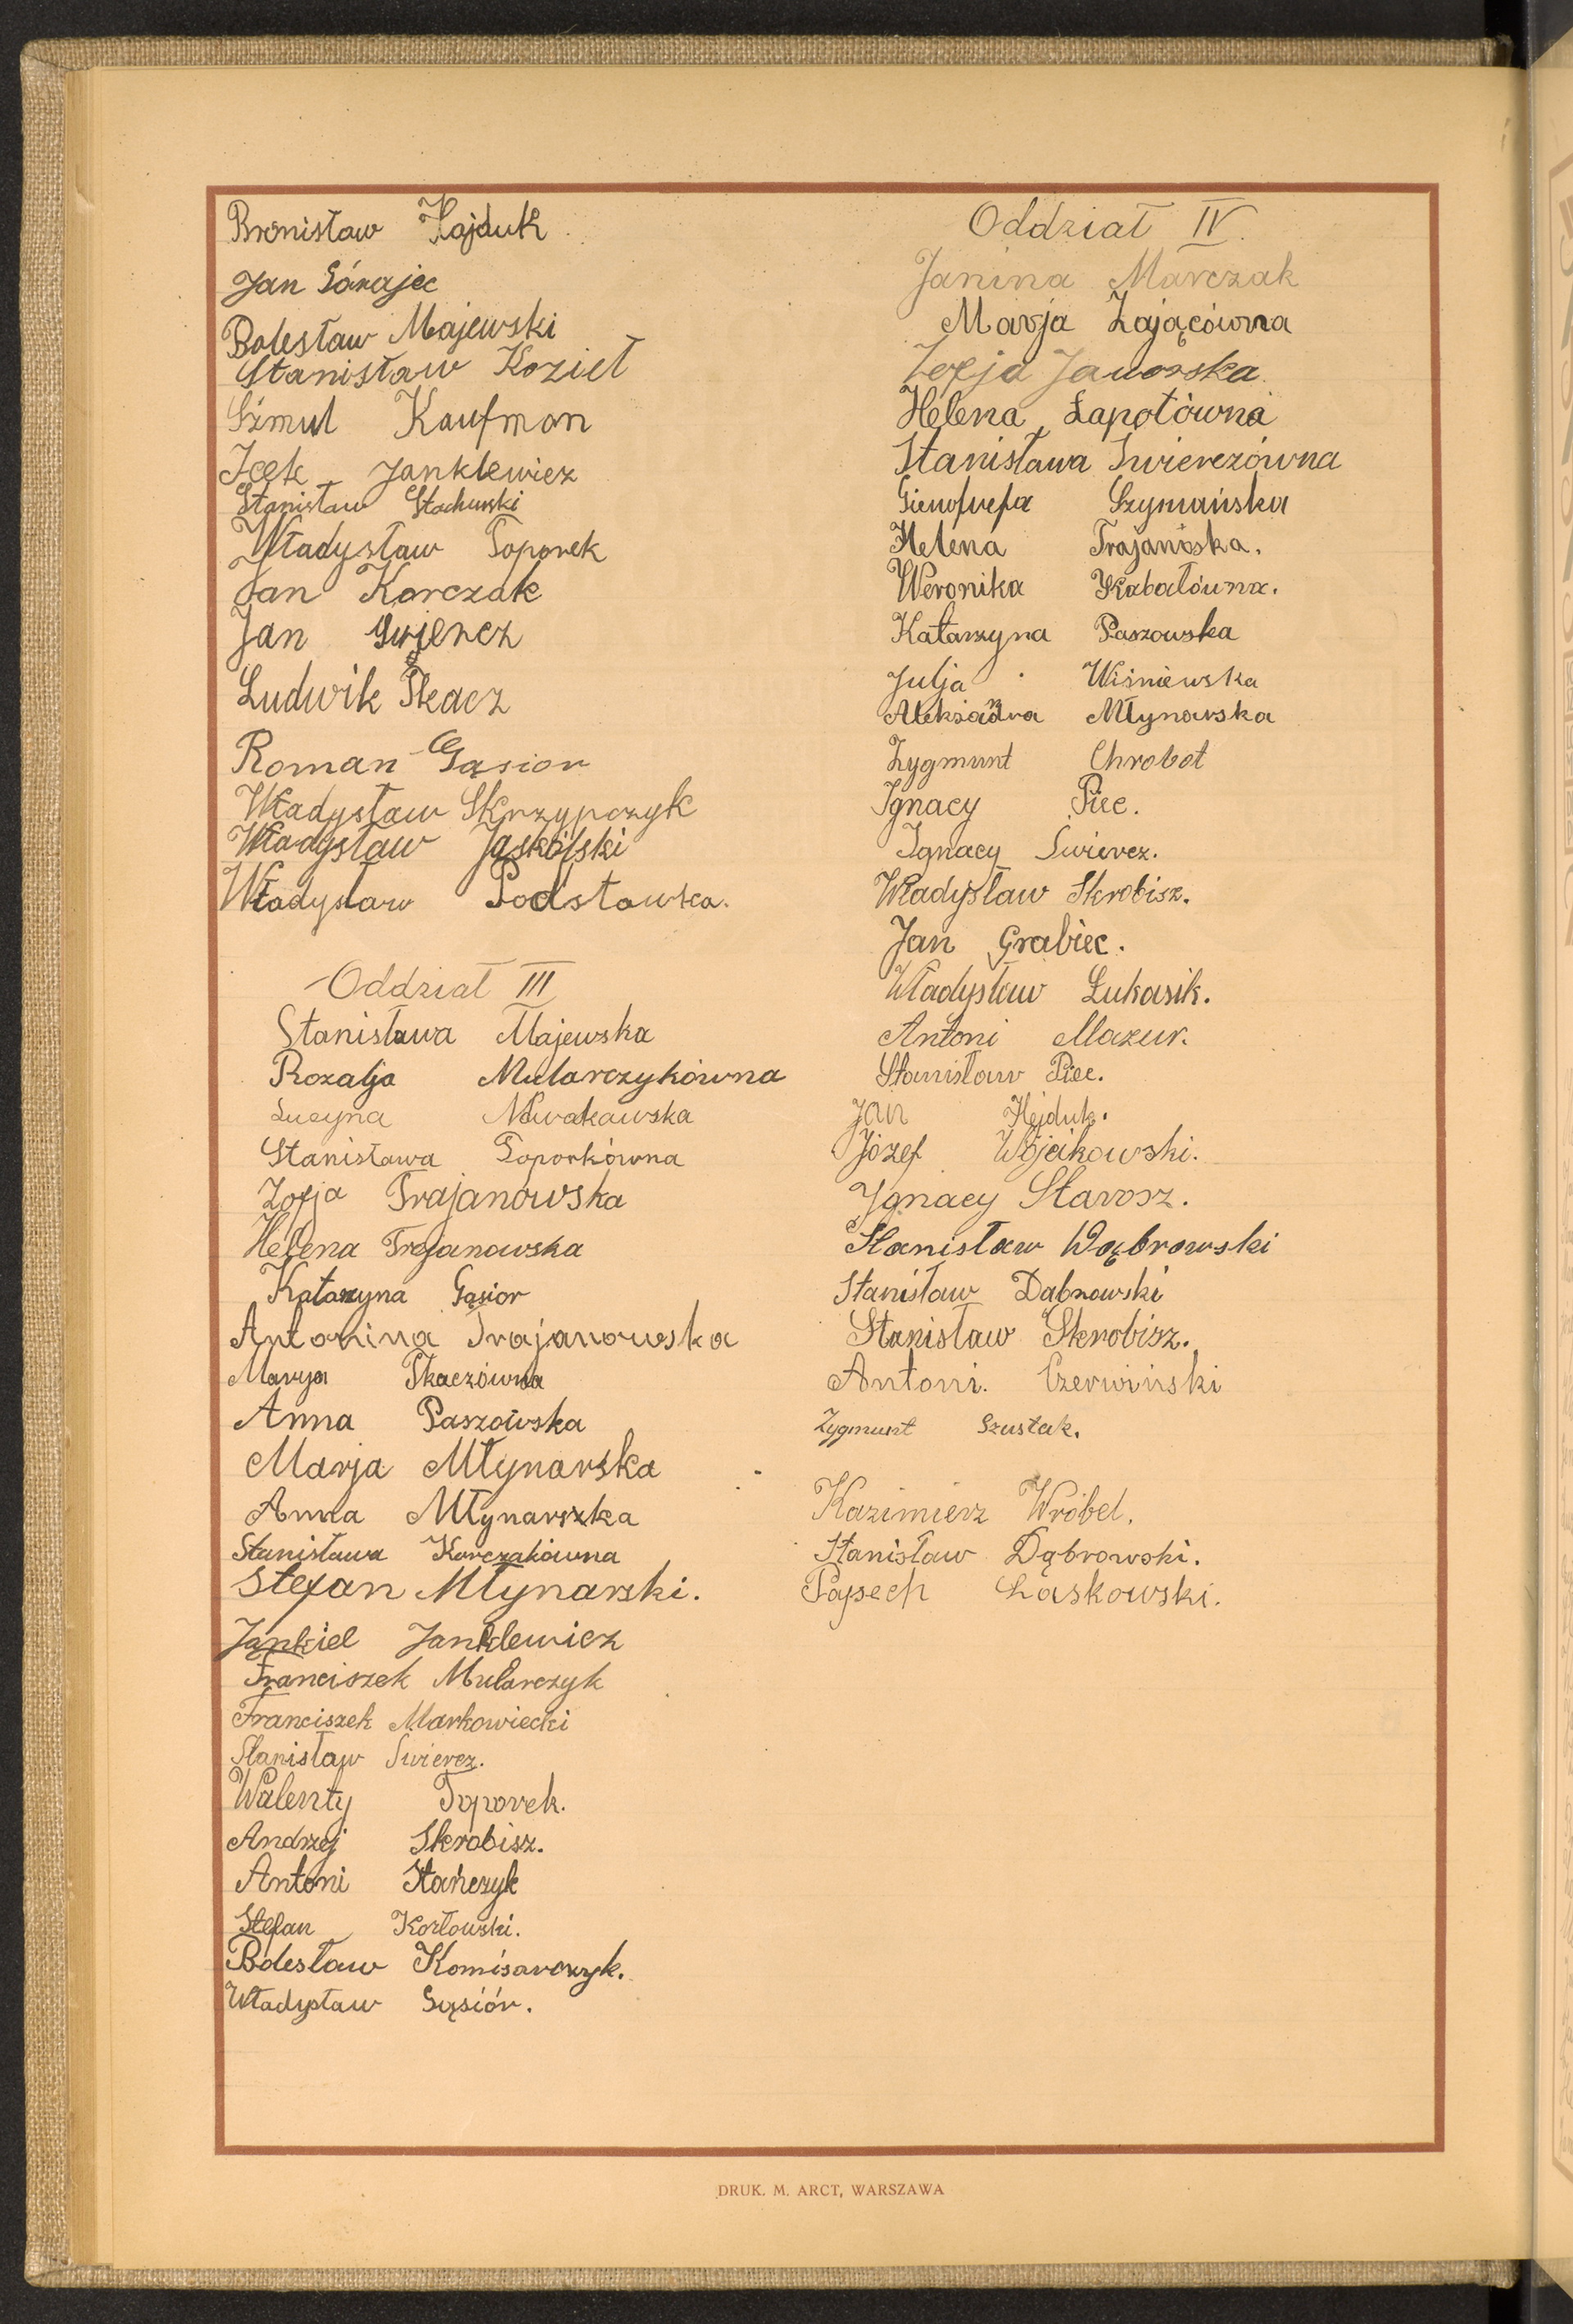 Bronisław Hajduk
Jan Górajec
Bolesław Majewski
Stanisław Kozieł
Szmul Kaufman
Icek Janklewicz
Stanisław Stachurski
Władysław Toporek
Jan Korczak
Jan Świercz
Ludwik Tkacz
Roman Gąsior
Władysław Skrzypczyk
Władysław Jaskólski
Władysław Podstawka.
Oddział III
Stanisława Majewska
Rozalja Mularczykówna
Lucyna Nowakowska
Stanisława Toporkówna
Zofja Trajanowska
Helena Trojanowska
Katarzyna Gąsior
Antonina Trajanowska
Marya Tkaczówna
Anna Paszowska
Marja Młynarska
Anna Młynarszka
Stanisława Korczakówna
Stefan Młynarski.
Jankiel Janklewicz
Franciszek Mularczyk
Franciszek Markowiecki
Stanisław Świercz.
Walenty Toporek.
Andrzej Skrobisz.
Antoni Stańczyk
Stefan Kozłowski.
Bolesław Komisarczyk.
Władysław Gąsiór.
Oddział IV.
Janina Marczak
Marja Zającówna
Zofja Jaworska
Helena Łapotówna
Stanisława Świerczówna
Gienofwefa Szymańska
Helena Trajanoska.
Weronika Kabałówna.
Katarzyna Paszowska
Julja Wiśniewska
Aleksandra Młynarska
Zygmunt Chrobot
Ignacy Piec.
Ignacy Świercz.
Władysław Skrobisz.
Jan Grabiec.
Władysław Łukasik.
Antoni Mazur.
Stanisław Piec.
Jan Hejduk.
Józef Wójcikowski.
Ignacy Starosz.
Stanisław Wąbrowski
Stanisław Dąbrowski
Stanisław Skrobisz.
Antoni. Czerwiński
Zygmunt Szustak.
Kazimierz Wróbel.
Stanisław Dąbrowski.
Pajsech Laskowski.
DRUK. M. ARCT, WARSZAWA